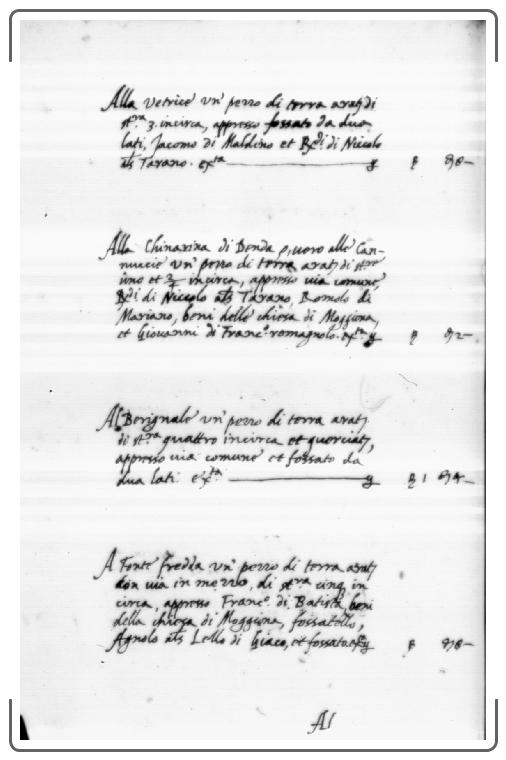 Alla Vetrice un' pezzo di terra arat. di
st.ra 3. incirca, appresso fossato da dua
lati, Jacomo di Maldino et di Niccolo
als Tarano. ex.ta
Alla Chinarina di Benda o, uero alle Can-
nuccie un' pezzo di terra arat. di st.ra
uno et incirca, appresso uia comune,
di Niccolo als Tarano, Romolo di
Mariano, beni della chiesa di Moggiona,
et Giouanni di Franc.o romagnolo. ex.ta
Al Berignale un' pezzo di terra arat.
di st.ra quattro incirca et querciat.,
appresso uia comune et fossato da
dua lati. ex.ta
A Fonte fredda un' pezzo di terra arat.
con uia in mezzo, di st.ra cinq. in
circa, appresso Franc.o di Batista, beni
della chiesa di Moggiona, fossatello,
Agnolo als Lello di Giaco, et fossato.
Al